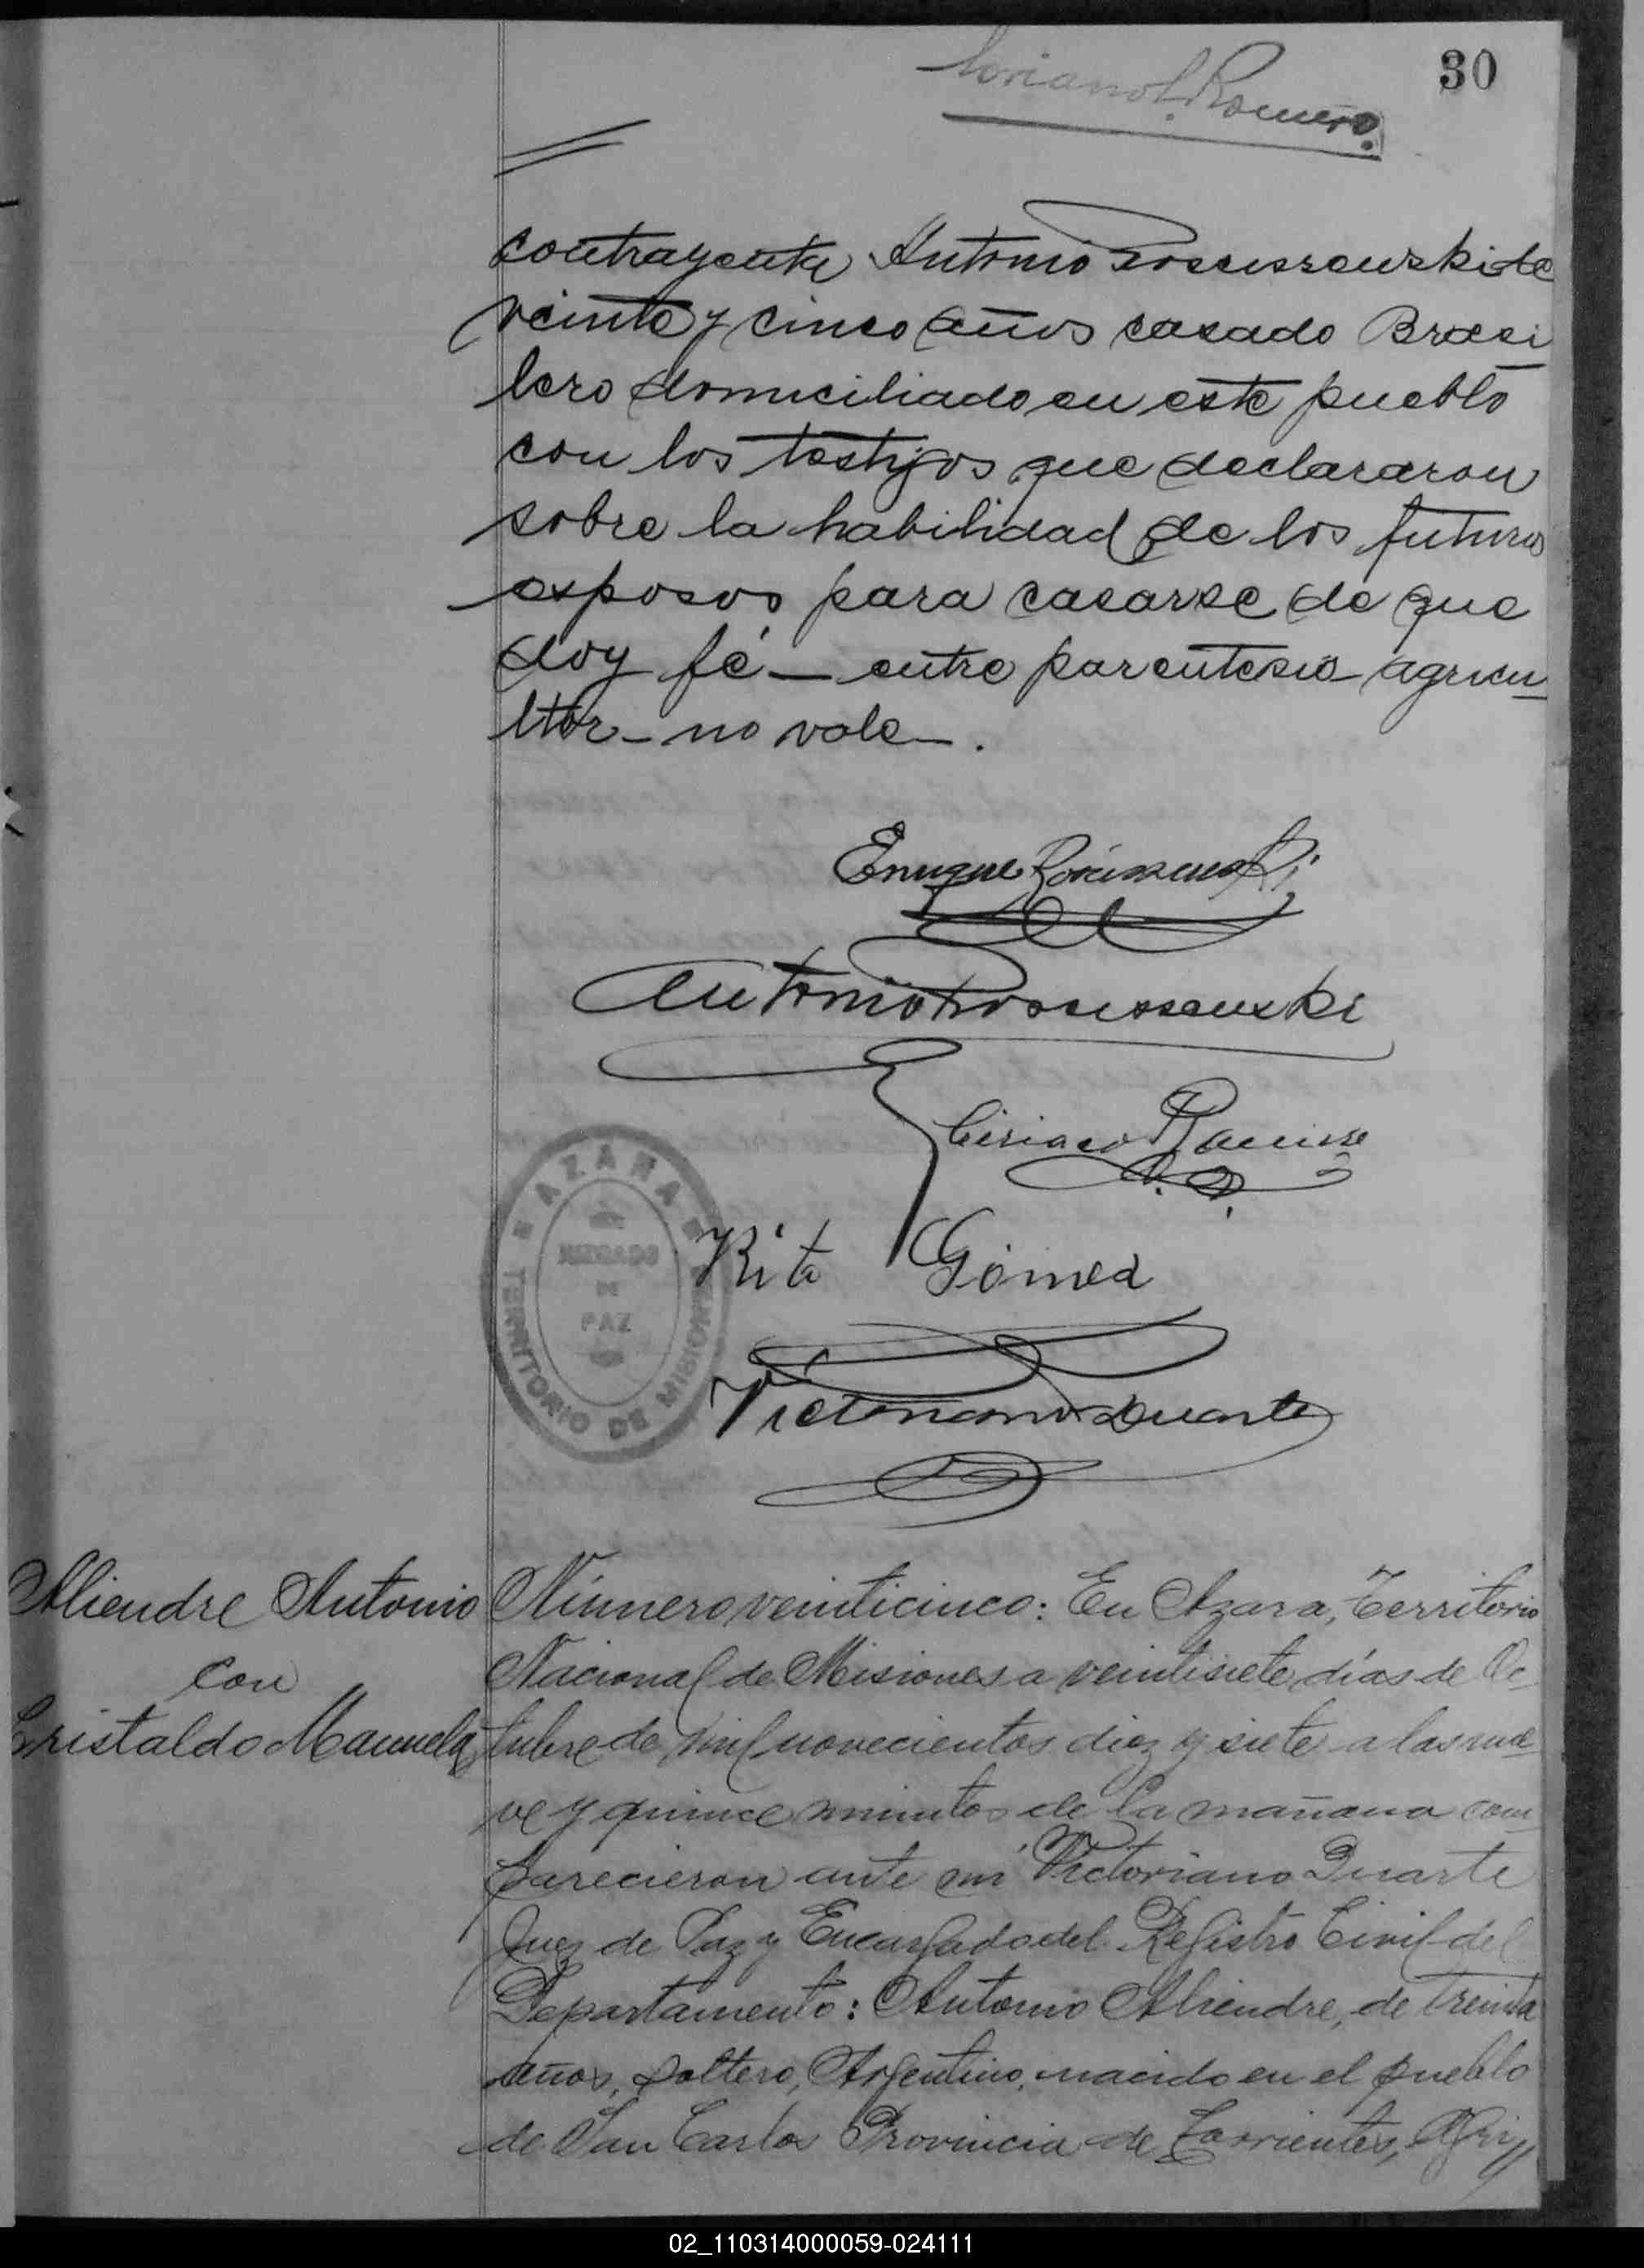 30
Romero.
contrayente Antonio de
veinte y cinco años casado Brasi
lero domiciliado en este pueblo
con los testigos que declararon
sobre la habilidad de los futuros
esposos para casarse de que
doy fé — entre parentesis agricu
ltor — no vale — .
Enrique
Antonio
Ciriaco Ramirez
AZARA
JUZGADO
DE
PAZ
TERRITORIO DE MISIONES
Rita Gomez
Victoriano Duarte
Aliendre Antonio
con
Cristaldo Manuela
Número veinticinco: En Azara, Territorio
Nacional de Misiones a veintisiete días de Oc-
tubre de mil novecientos diez y siete a las nue-
ve y quince minutos de la mañana com-
parecieron ante mí Victoriano Duarte
Juez de Paz y Encargado del Registro Civil del
Departamento: Antonio Aliendre, de treinta
años, soltero, Argentino, nacido en el pueblo
de San Carlos Provincia de Corrientes, Agri
02_110314000059-024111